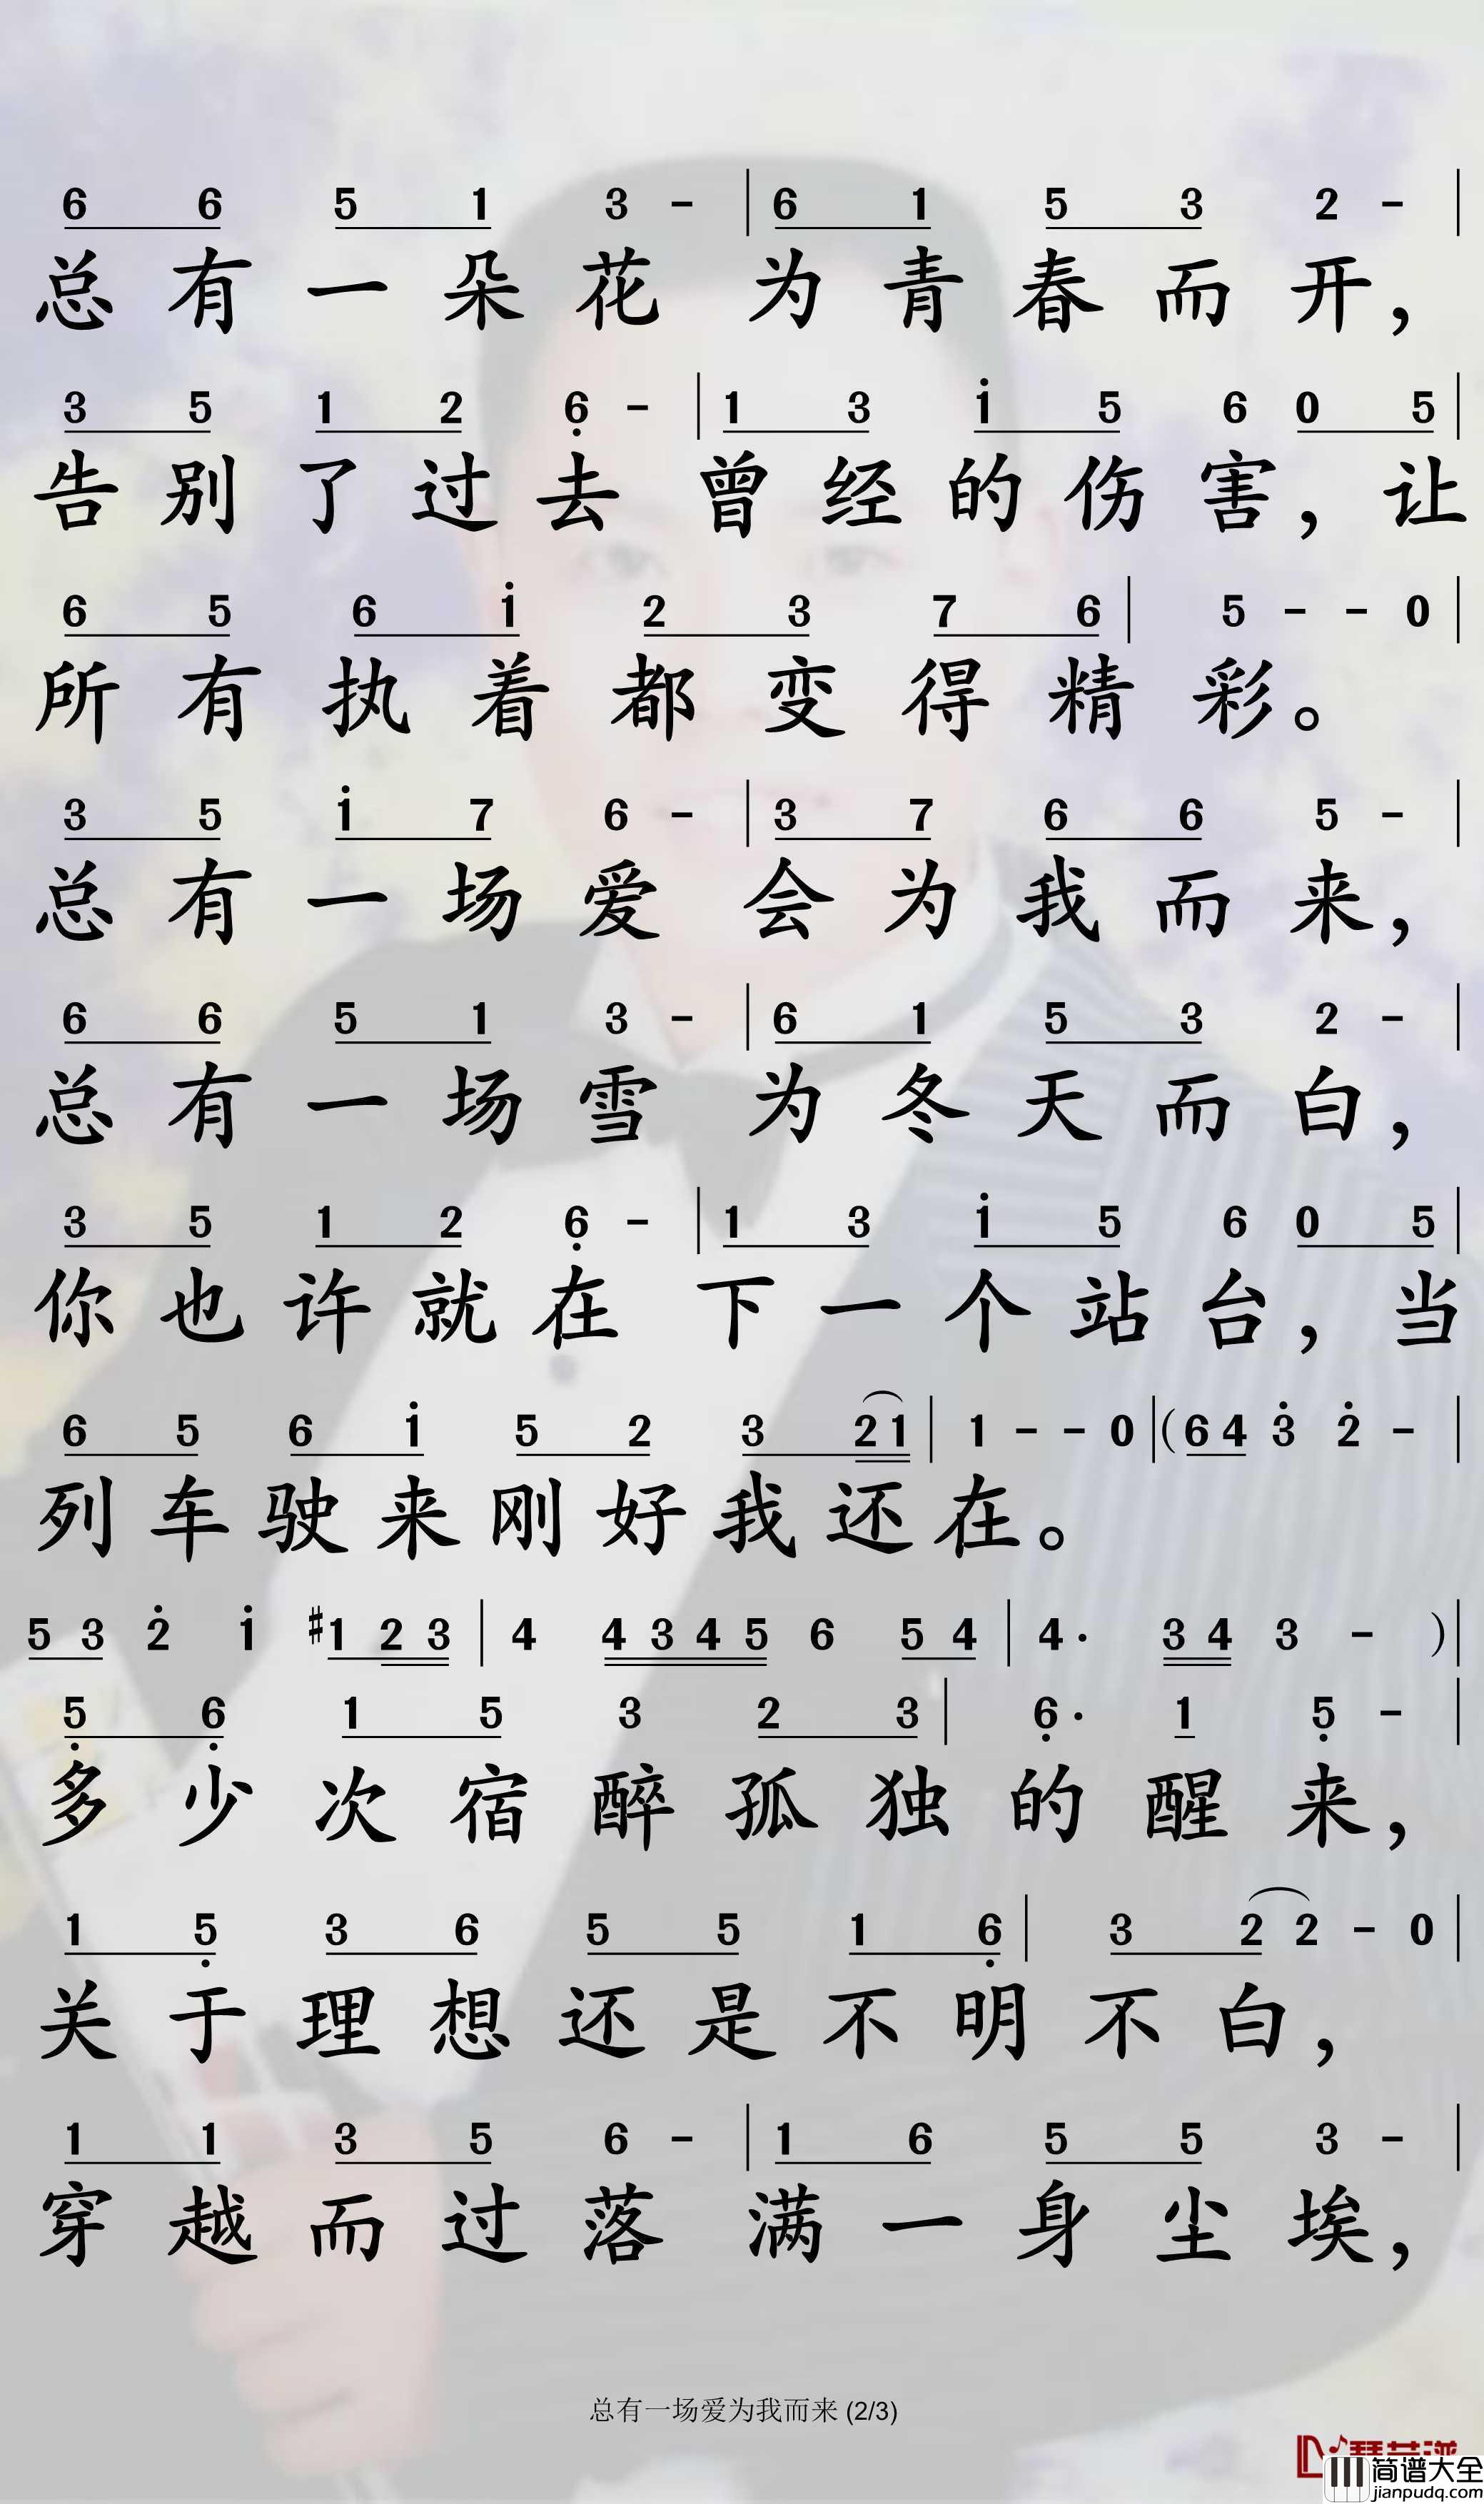 6 6 5 1 3 - | 6 1 5 3 2 - |
总有一朵花 为青春而开，
3 5 1 2 6̣ - | 1 3 i 5 6 0 5 |
告别了过去 曾经的伤害，让
6 5 6 i 2 3 7 6 | 5 - - 0 |
所有执着都变得精彩。
3 5 i 7 6 - | 3 7 6 6 5 - |
总有一场爱 会为我而来，
6 6 5 1 3 - | 6 1 5 3 2 - |
总有一场雪 为冬天而白，
3 5 1 2 6̣ - | 1 3 i 5 6 0 5 |
你也许就在 下一个站台，当
6 5 6 i 5 2 3 2 1 | 1 - - 0 | ( 6 4 3̇ 2̇ - |
列车驶来刚好我还在。
5 3 2̇ i #1 2 3 | 4 4 3 4 5 6 5 4 | 4· 3 4 3 - ) |
5̣ 6̣ 1 5 3 2 3 | 6̣· 1 5̣ - |
多少次宿醉孤独的醒来，
1 5̣ 3 6 5 5 1 6̣ | 3 2 2 - 0 |
关于理想还是不明不白，
1 1 3 5 6 - | 1 6 5 5 3 - |
穿越而过落 满一身尘埃，
总有一场爱为我而来 (2/3)
简谱大全
jianpudq.com